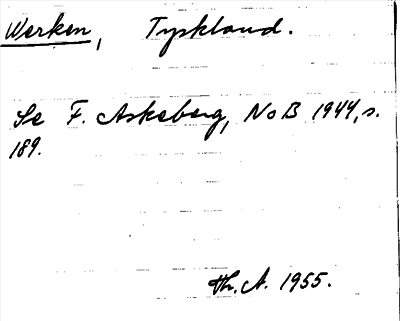 Werken, Tyskland.
Se F. Askeberg, NoB 1944, s.
189.
Th. A. 1955.